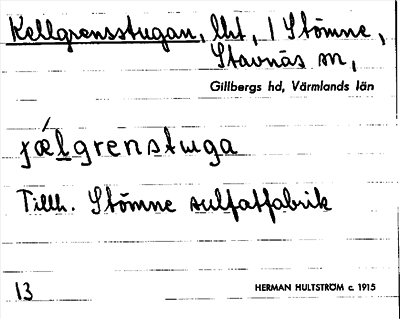 Kellgrensstugan, lht, / Stömne,
Stavnäs sn,
Gillbergs hd, Värmlands län
ɟǽlgrenstuga
Tillh. Stömne sulfatfabrik
13 HERMAN HULTSTRÖM c. 1915